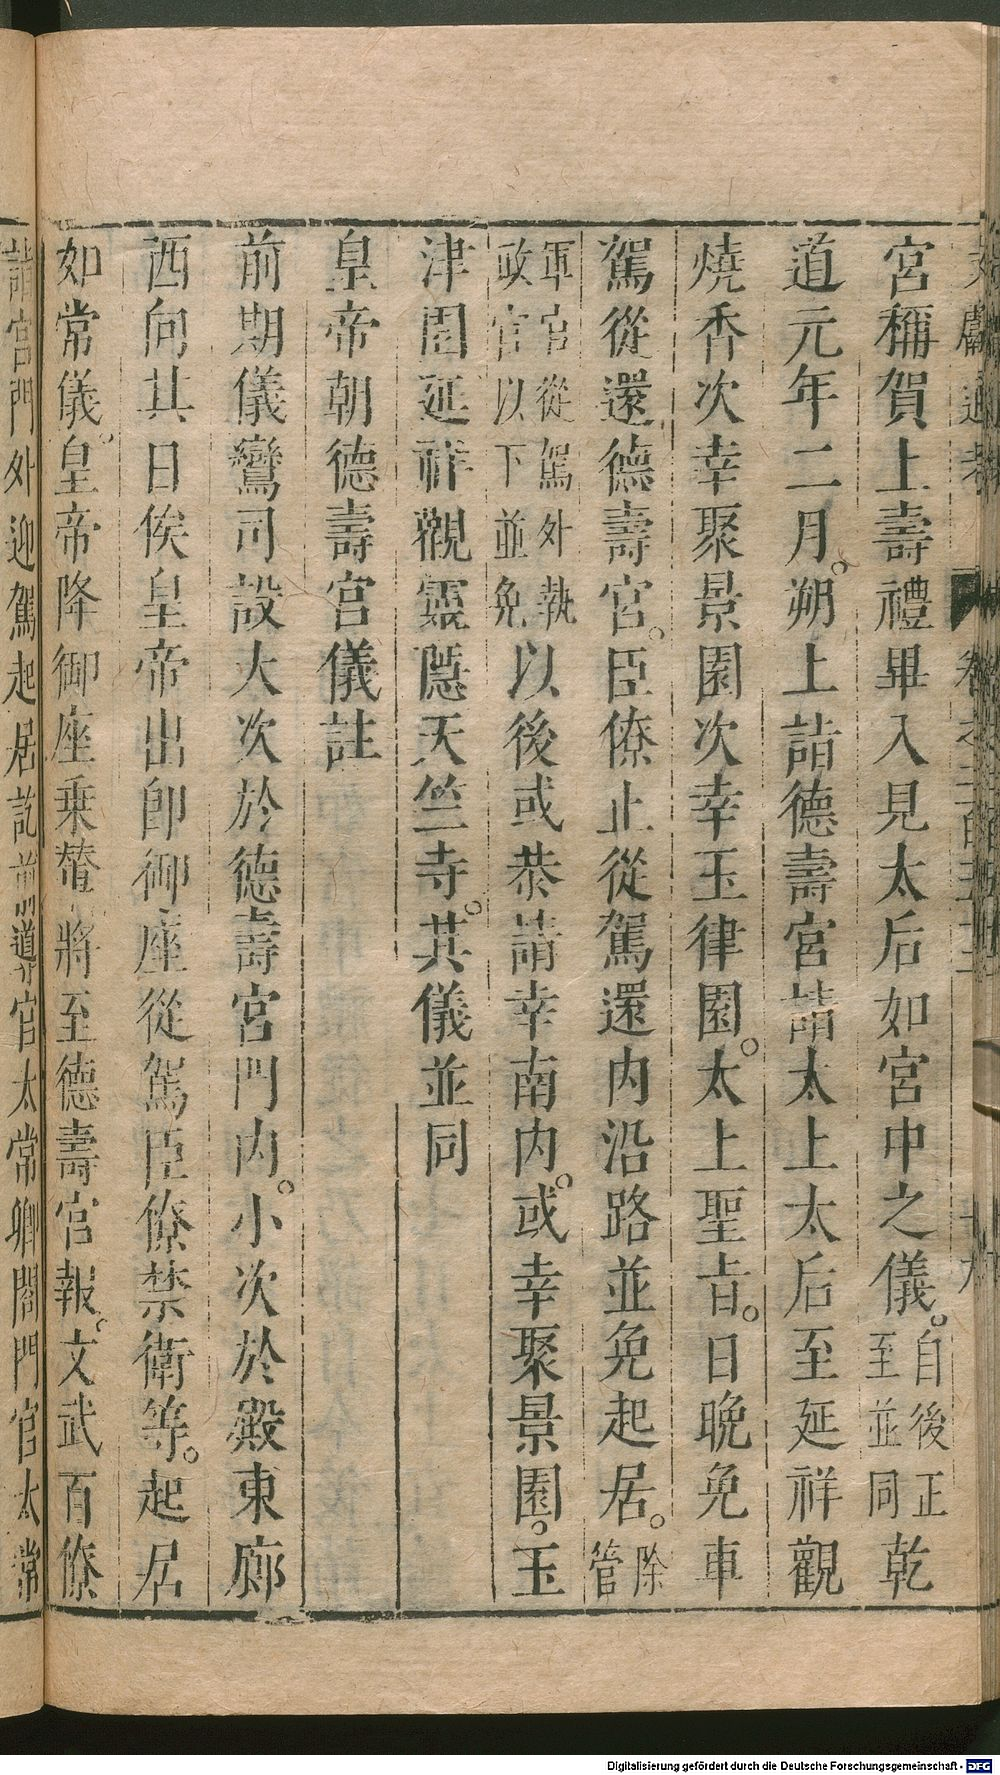 宮稱賀上壽禮畢入見太后如宮中之儀。自後正至並同乾
道元年二月。朔上詣德壽宮請太上太后至延祥觀
燒香次幸聚景園次幸玉律園。太上聖㫖。日晚免車
駕從還德壽宮。臣僚止從駕還内沿路並免起居。除管
軍官從駕外執政官以下並免以後或恭請幸南内。或幸聚景園。玉
津園延祥觀靈隱天竺寺。其儀並同
皇帝朝德壽宮儀註
前期儀鸞司設大次於德壽宮門内。小次於殿東廊
西向其日俟皇帝出卽御座從駕臣僚禁衛等。起居
如常儀。皇帝降御座乗輦將至德壽宮報。文武百僚
詣宮門外迎駕起居訖前導官太常卿閤門官太常
Digitalisierung gefördert durch die Deutsche Forschungsgemeinschaft - DFG